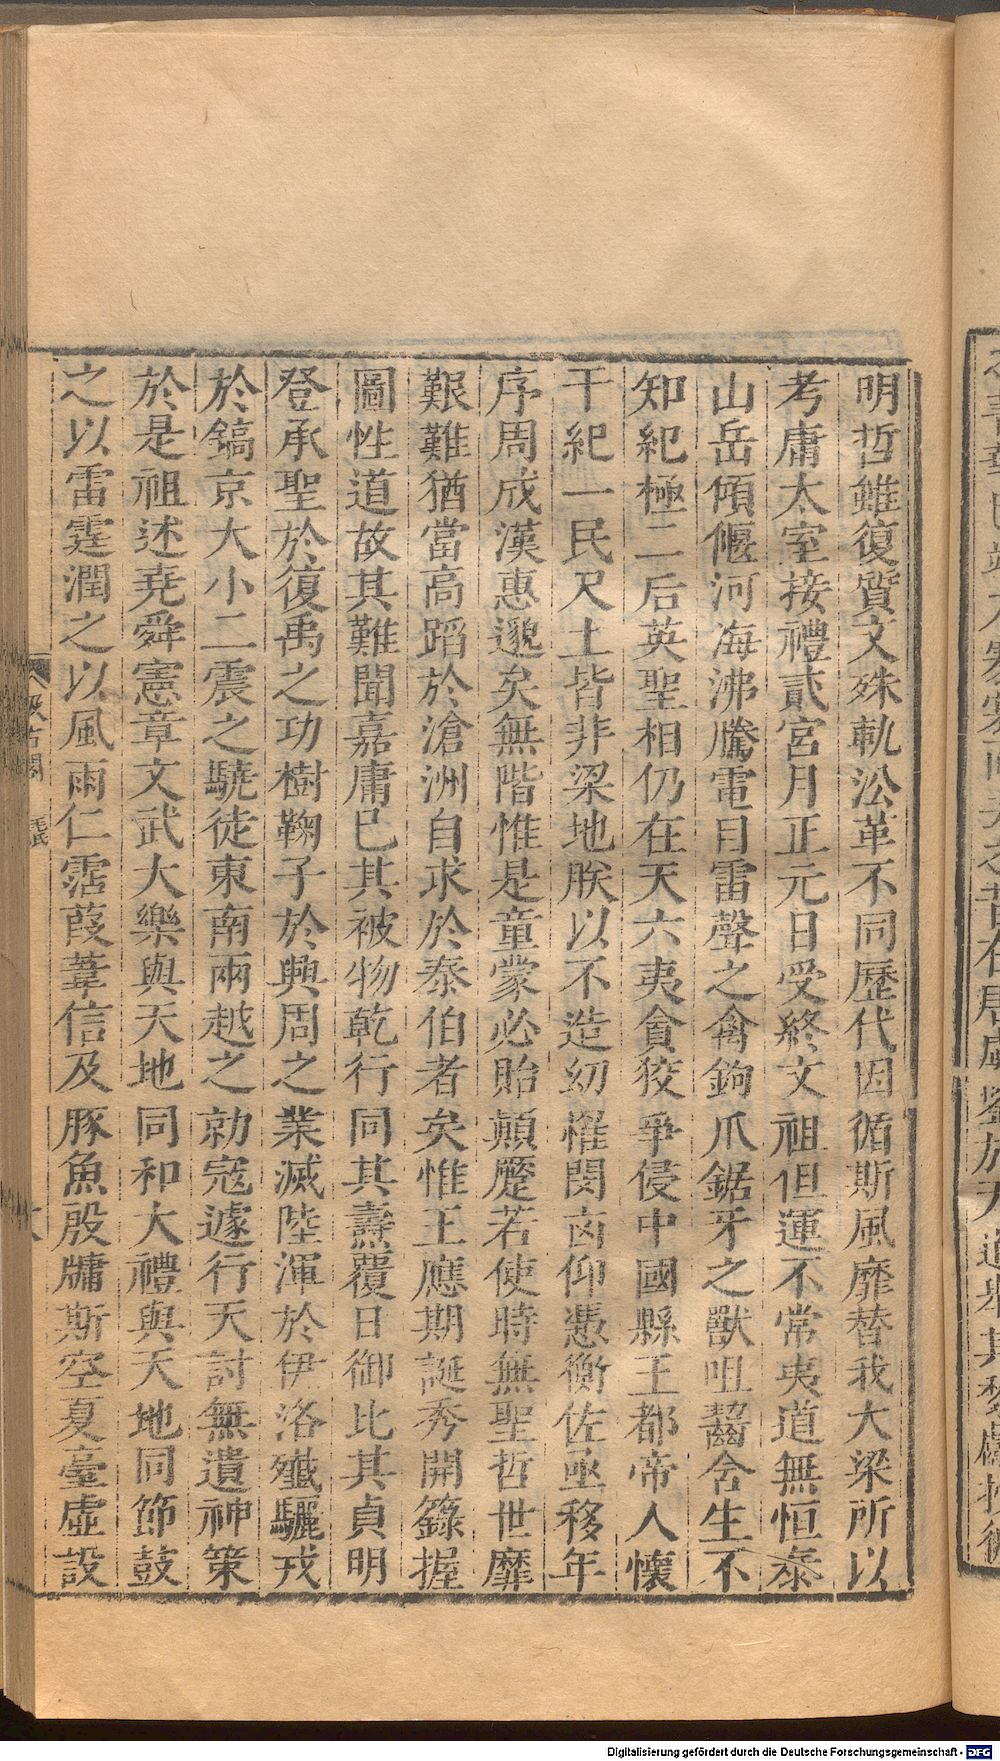 明哲雖復質文殊軌㳂革不同歷代因循斯風靡替我大梁所以
考庸太室接禮貳宮月正元日受終文祖但運不常夷道無恒泰
山岳傾偃河海沸騰電目雷聲之禽鉤爪鋸牙之獸咀齧含生不
知紀極二后英聖相仍在天六夷貪狡爭侵中國縣王都帝人懷
干紀一民尺土皆非梁地朕以不造幼罹閔凶仰憑衡佐亟移年
序周成漢惠邈矣無階惟是童蒙必貽顛蹷若使時無聖哲世靡
艱難猶當高蹈於滄洲自求於泰伯者矣惟王應期誕秀開籙握
圖性道故其難聞嘉庸已其被物乾行同其燾覆日御比其貞明
登承聖於復禹之功樹鞠子於興周之業滅陸渾於伊洛殲驪戎
於鎬京大小二震之驍徒東南兩越之勍寇遽行天討無遺神策
於是祖述堯舜憲章文武大樂與天地同和大禮與天地同節鼓
之以雷霆潤之以風雨仁霑葭葦信及豚魚殷牖斯空夏臺虛設
汲古閣
毛氏
Digitalisierung gefördert durch die Deutsche Forschungsgemeinschaft - DFG